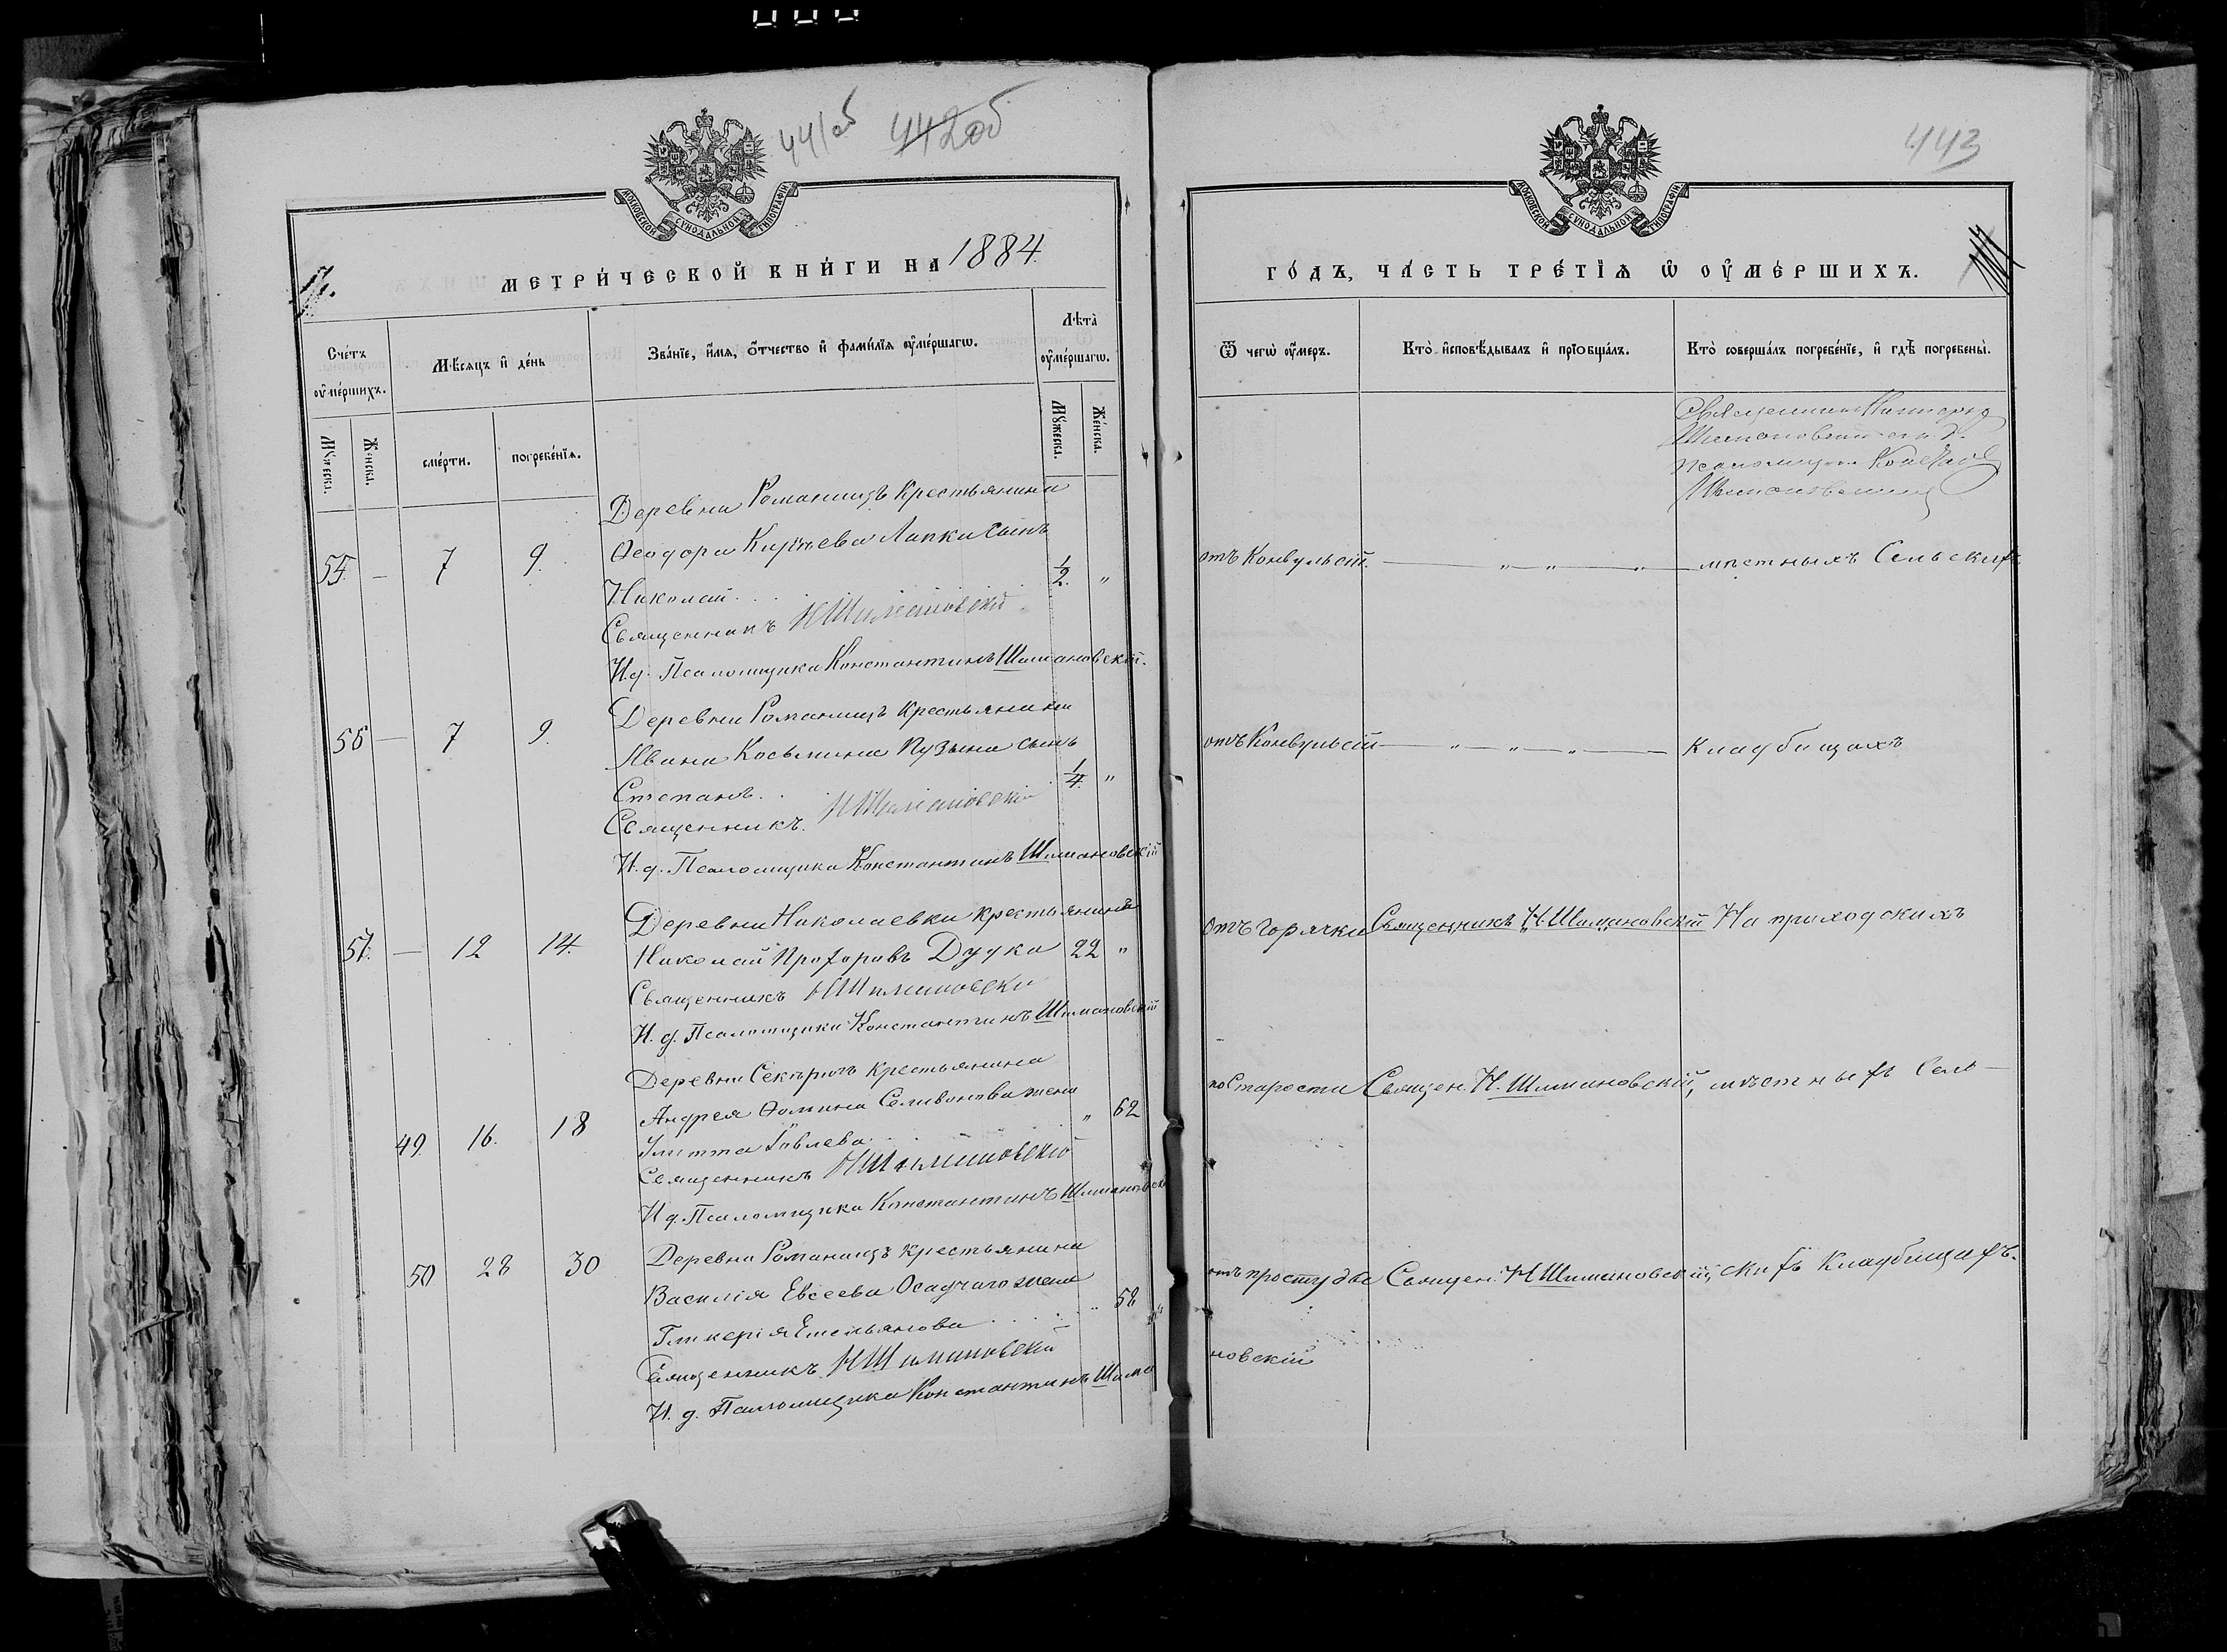 441об 442об
МОСКОВСКОЙ СУНОДАЛЬНОЙ ТИПОГРАФІИ
МЕТРИ́ЧЕСКОЙ КНИ́ГИ НА 1884.
Сче́тъ ᲂу҆ме́ршихъ.
Мѣ́сяцъ и҆ де́нь
Зва́нїе, и҆́мя, ѻ҆́тчество и҆ фами́лїя ᲂу҆ме́ршагѡ.
Лѣта̀ ᲂу҆ме́ршагѡ.
Му́жеска.
Же́нска.
сме́рти.
погребе́нїя.
Му́жеска.
Же́нска.
Деревни Романицъ Крестьянина
55. — 7 9. Ѳеодора Лапки сынъ
Николай . . . 1/2. "
Священникъ Н Шимановскій
И д. Псаломщика Константинъ Шимановскій.
Деревни Романицъ крестьянина
56 — 7 9. Ивана Косьмина Пузына сынъ
Степанъ. . . 1/4. "
Священникъ. Н Шимановскій
И. д. Псаломщика Константинъ Шимановскій
Деревни Николаевки крестьянинъ
57. — 12 14. Николай Прохоровъ Дудка 22 "
Священникъ Н Шимановскій
И. д. Псаломщика Константинъ Шимановскій
Деревни крестьянина
Андрея Ѳомина Селиванова жена
49. 16. 18 Іулитта Іовлева . . . " 62
Священникъ Н Шимановскій
И д. Псаломщика Константинъ Шимановскій
Деревни Романицъ крестьянина
50 28 30 Василія Евсеева Осадчаго жена
Гликерія Емельянова . . . . " 58 "
Священникъ Н Шимановскій
И. д. Псаломщика Константинъ Шима
443
МОСКОВСКОЙ СУНОДАЛЬНОЙ ТИПОГРАФІИ
ГО́ДЪ, ЧА́СТЬ ТРЕ́ТЇЯ Ѡ҆ ОУ҆МЕ́РШИХЪ.
Ѿ чегѡ̀ ᲂу҆́меръ.
Кто̀ и҆сповѣ́дывалъ и҆ прїобща́лъ.
Кто̀ соверша́лъ погребе́нїе, и҆ гдѣ̀ погребены̀.
Священникъ
Шимановскій съ и. д.
псаломщика
Шимановскимъ
отъ Конвульсій. — " — " — " — мѣстныхъ Сельскихъ
отъ Конвульсій — " — " — " — кладбищахъ
Отъ горячки Священникъ Н. Шимановскій На приходскихъ
по Старости Священ. Н. Шимановскій, мѣстныхъ Сель-
отъ простуды Священ. Н Шимановскій, скихъ Кладбищахъ.
новскій